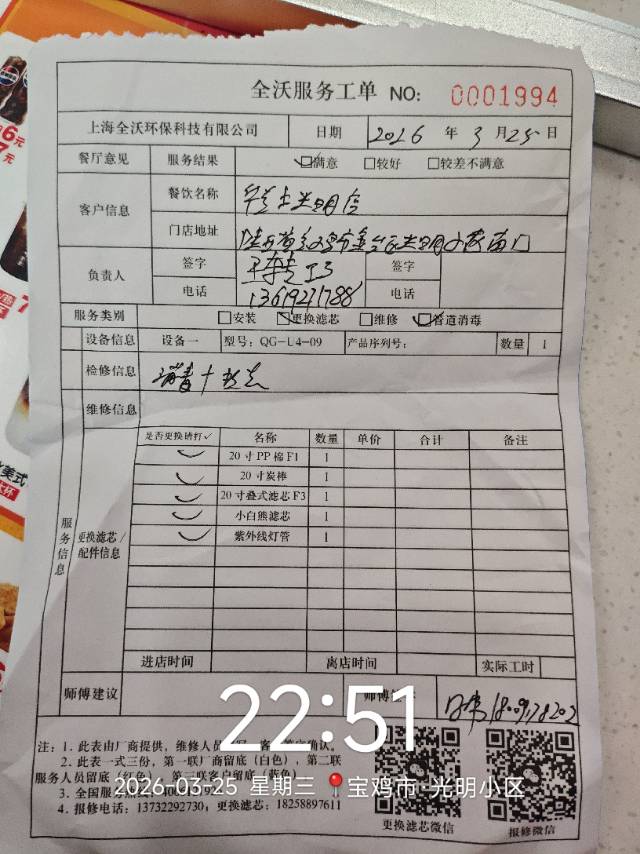 全沃服务工单 NO: 0001994
上海全沃环保科技有限公司 日期 2026 年 3 月 25 日
餐厅意见 服务结果 满意 较好 较差不满意
客户信息 餐饮名称 光明店
门店地址 陕西省宝鸡市金台区光明小区南门
负责人 签字 签字
电话 13619271788 电话
服务类别 安装 更换滤芯 维修 管道消毒
设备信息 设备一 型号: QG-L4-09 产品序列号: 数量 1
检修信息 消毒+换芯
维修信息
服务信息 更换滤芯/配件信息
是否更换请打✓ 名称 数量 单价 合计 备注
20寸PP棉F1 1
20寸炭棒 1
20寸叠式滤芯F3 1
小白熊滤芯 1
紫外线灯管 1
进店时间 离店时间 实际工时
师傅建议 师傅
22:51
注: 1. 此表由厂商提供, 维修人员 确认。
2. 此表一式三份, 第一联厂商留底(白色), 第二联
服务人员留底(红色) 第三联客户留底(蓝色)
3. 全国服务
2026-03-25 星期三 宝鸡市·光明小区
4. 报修电话: 13732292730; 更换滤芯: 18258897611
更换滤芯微信 报修微信
6元
7元
美式